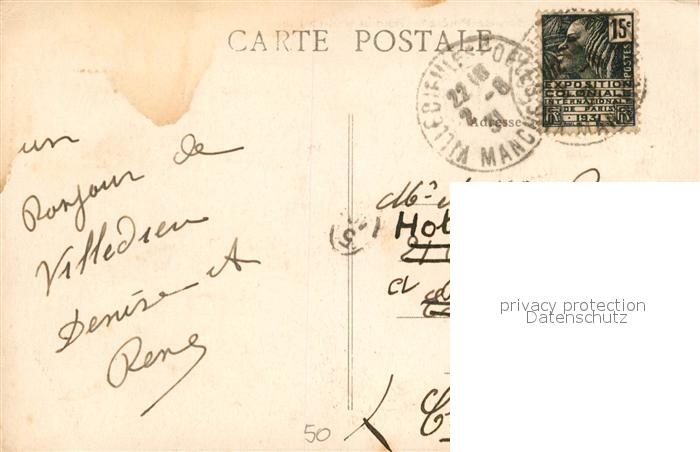 CARTE POSTALE
15c
POSTES
EXPOSITION
COLONIALE
INTERNATIONALE
DE PARIS
1931
VILLEDIEU-LES-POELES
MANCHE
22
2-8
31
Adresse
un
Bonjour de
Villedieu
Denise et
René
Hot
et
50
privacy protection
Datenschutz